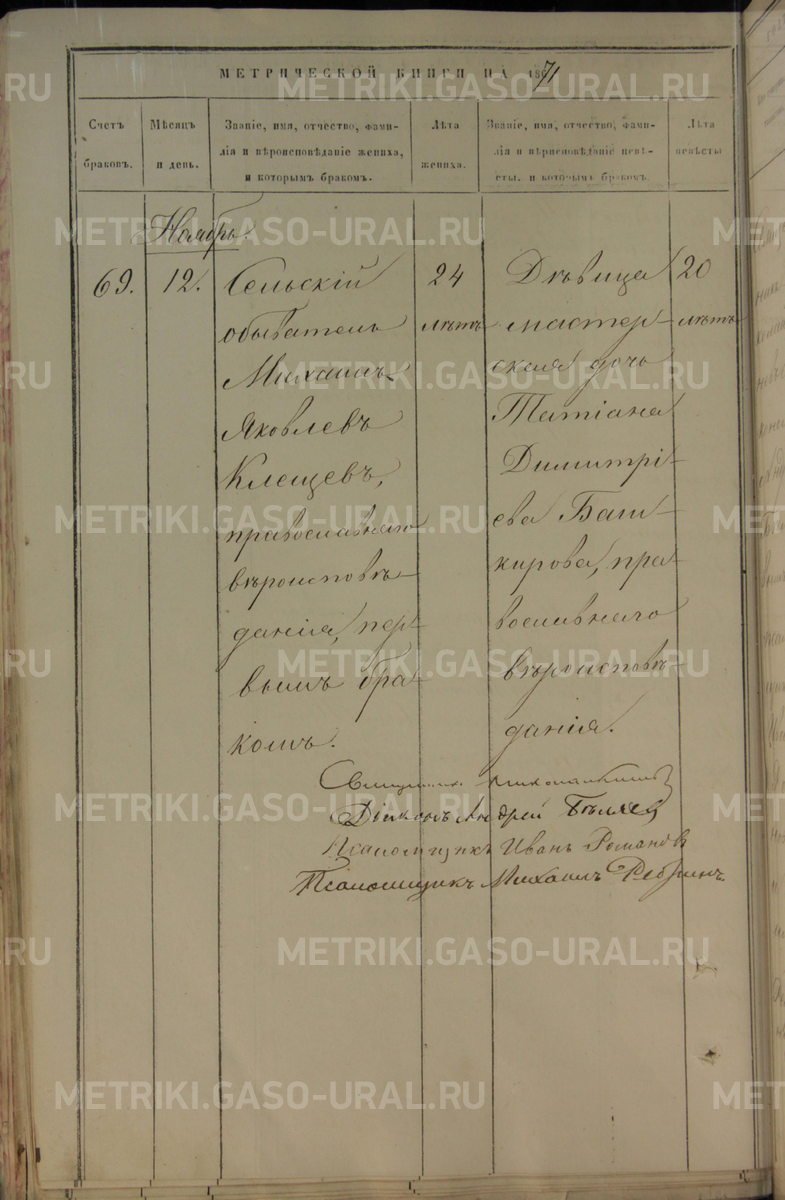 МЕТРИЧЕСКОЙ КНИГИ НА 1871
Счетъ браковъ.
Мѣсяцъ и день.
Званіе, имя, отчество, фами-
лія и вѣроисповѣданіе жениха,
и которымъ бракомъ.
Лѣта жениха.
Званіе, имя, отчество, фами-
лія и вѣроисповѣданіе невѣ-
сты, и которымъ бракомъ.
Лѣта невѣсты
Ноябрь.
69.
12.
Сельскій
обыватель
Михаилъ
Яковлевъ
Клещевъ,
православнаго
вѣроисповѣ-
данія, пер-
вымъ бра-
комъ.
24
лѣтъ
Дѣвица
мастер-
ская дочь
Татіана
Димитрі-
ева Баш-
кирова, пра-
вославнаго
вѣроисповѣ-
данія.
20
лѣтъ
Священникъ
Діаконъ Андрей Бѣляев
Псаломщикъ Иванъ Романов
Псаломщикъ Михаилъ
METRIKI.GASO-URAL.RU